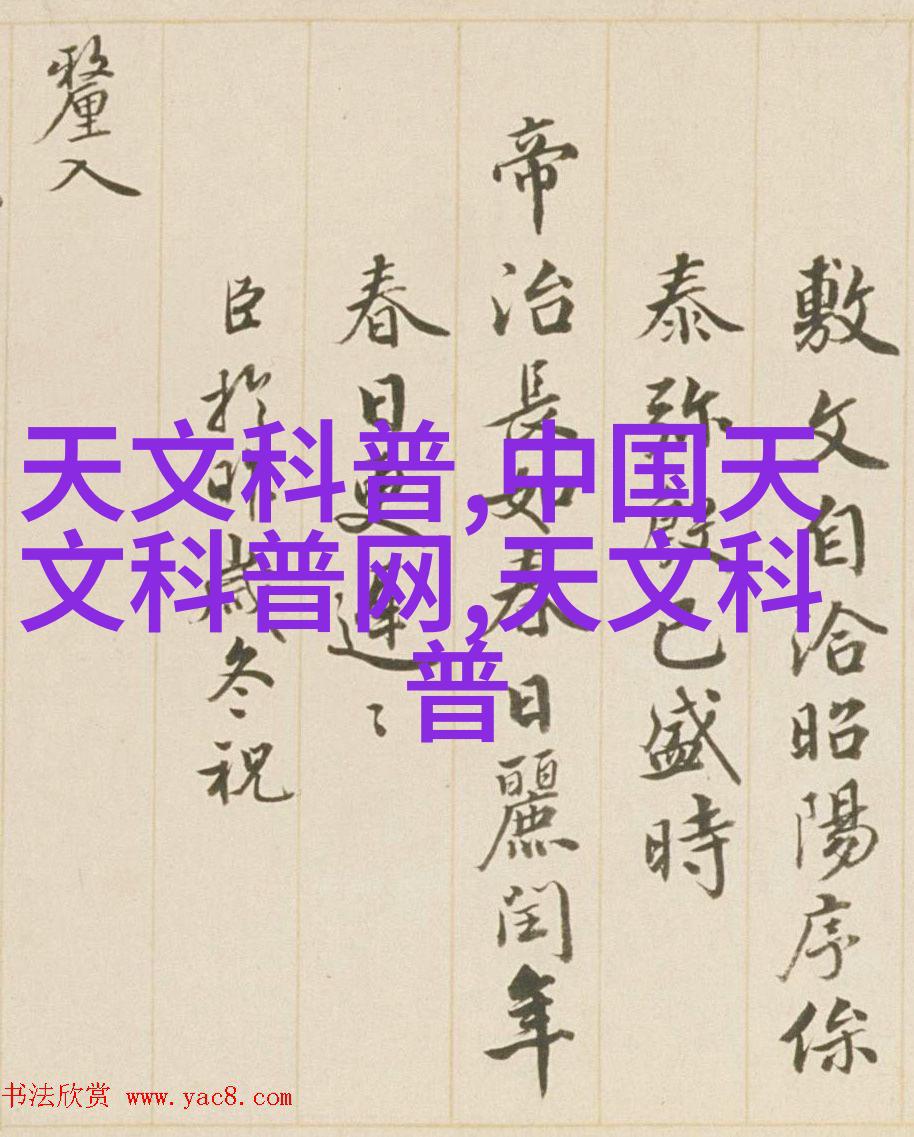 敷文自洽昭陽序係
泰弥殷已盛時
帝治長如春日麗閏年
春日更遲〻
臣於昨歲冬祝
釐入
天文科普,中国天
文科普网,天文科
普
书法欣赏 www.yac8.com